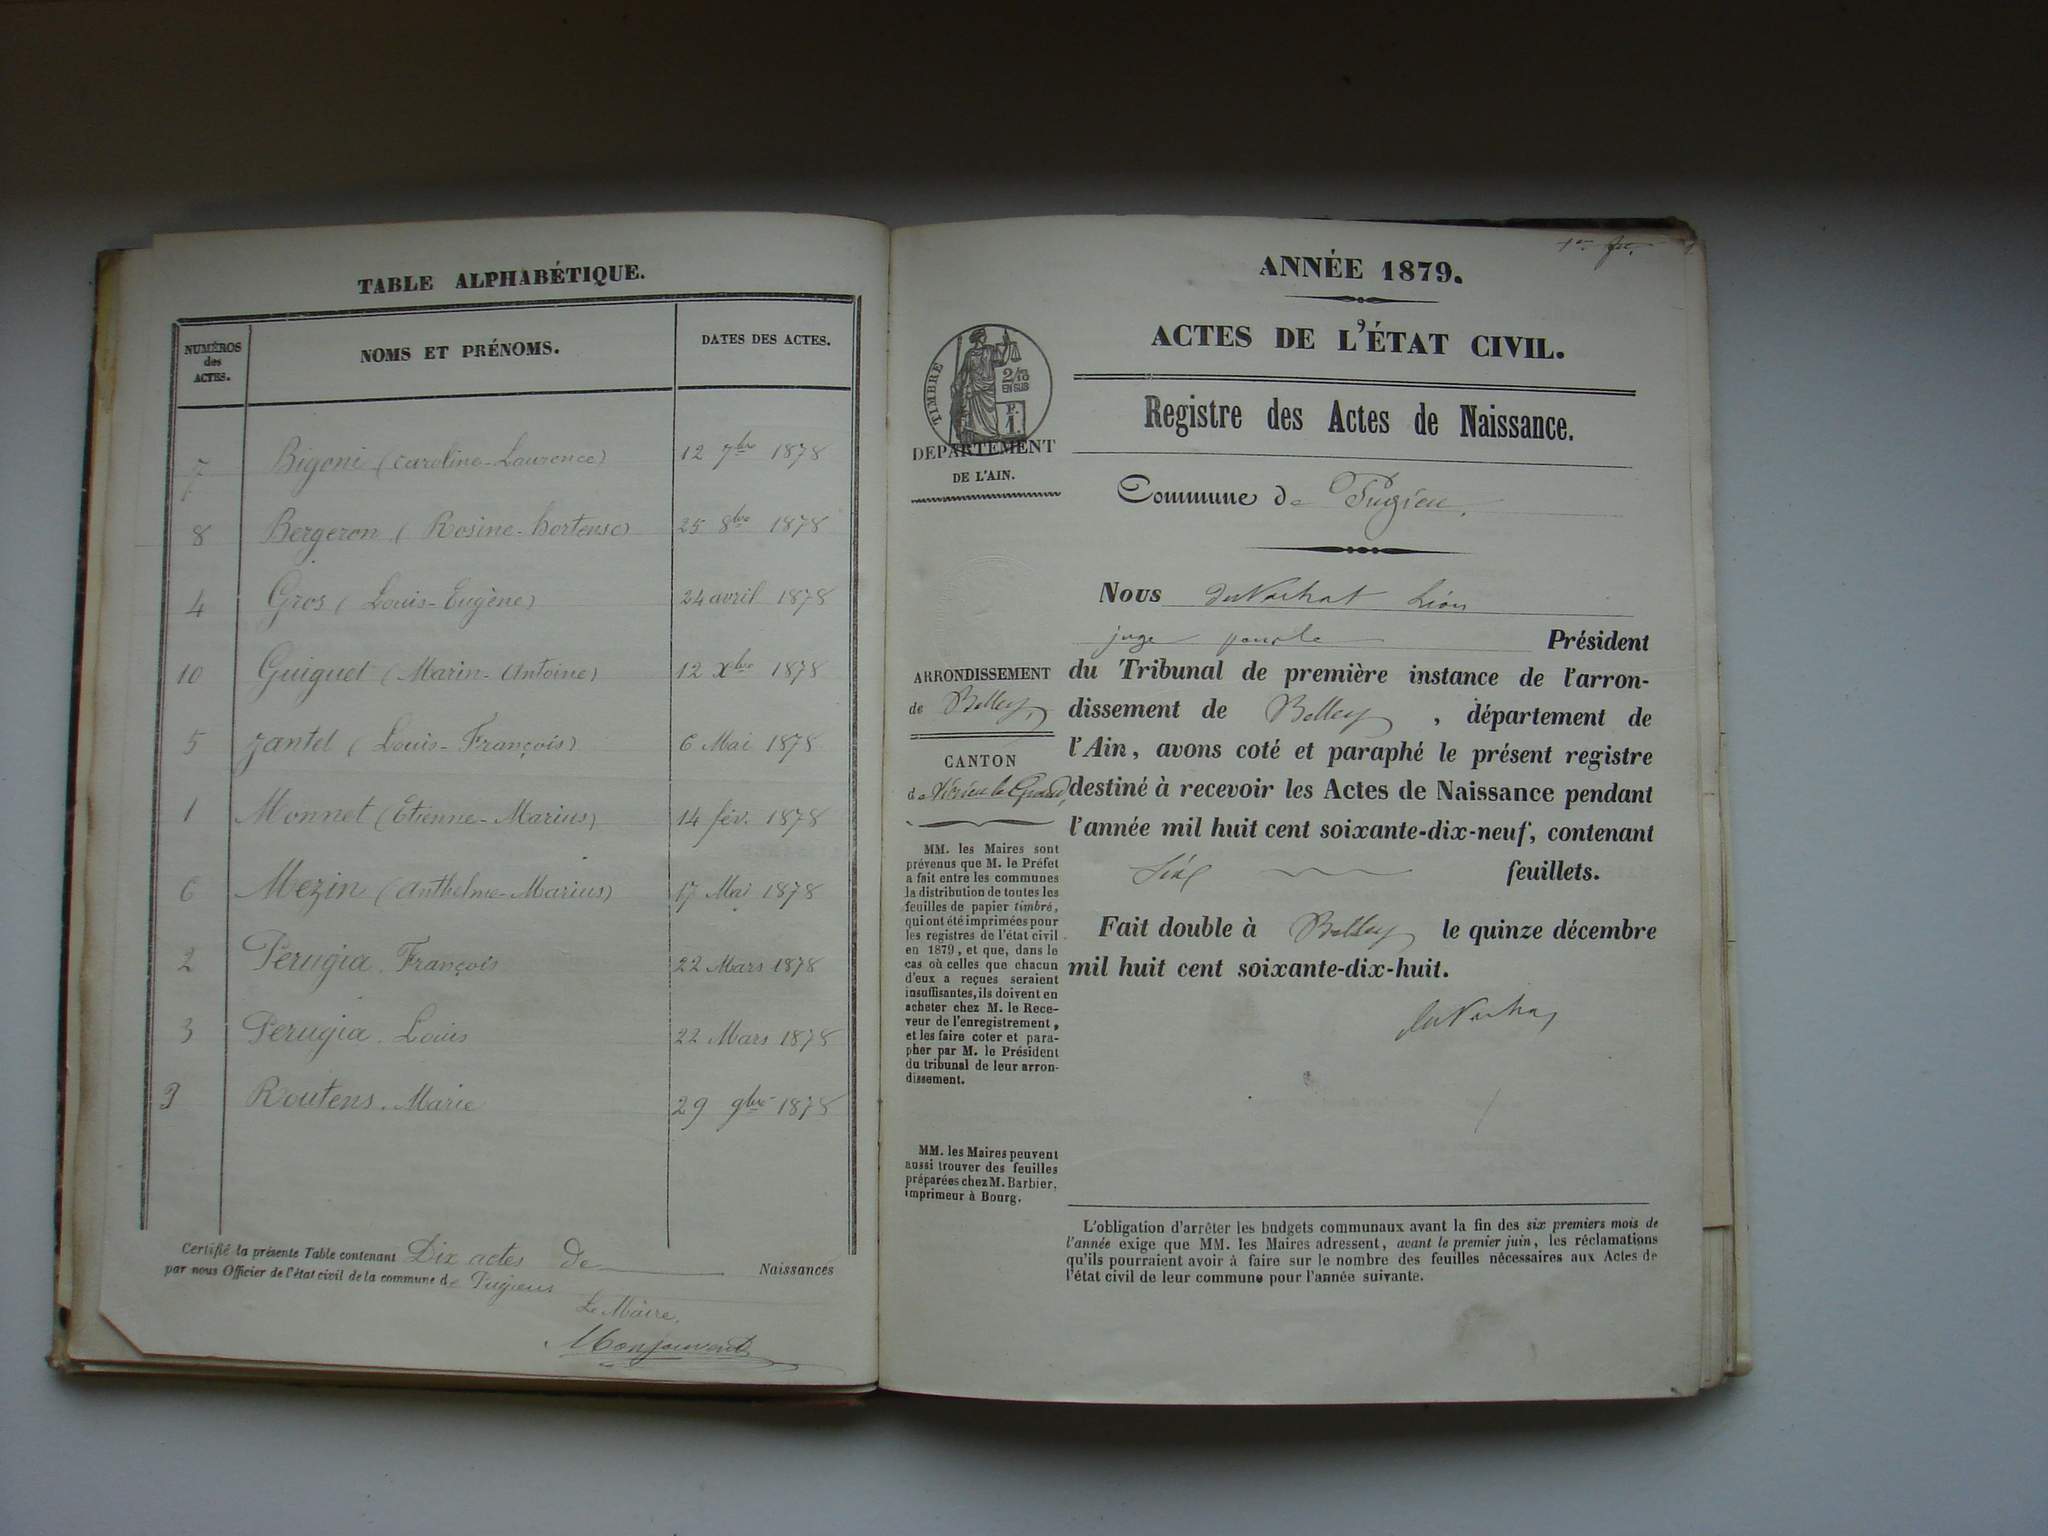 TABLE ALPHABÉTIQUE.
NUMÉROS des ACTES. NOMS ET PRÉNOMS. DATES DES ACTES.
7 Bigoni (Caroline-Laurence) 12 7bre 1878
8 Bergeron (Rosine-hortense) 25 8bre 1878
4 Gros (Louis-Eugène) 24 avril 1878
10 Guiguet (Marin-Antoine) 12 Xbre 1878
5 Jantet (Louis-François) 6 Mai 1878
1 Monnet (Etienne-Marius) 14 fév. 1878
6 Mezin (Anthelme-Marius) 17 Mai 1878
2 Perugia. François 22 Mars 1878
3 Perugia. Louis 22 Mars 1878
Routens. Marie 29 9bre 1878
Certifié la présente Table contenant Dix actes de Naissances
par nous Officier de l'état civil de la commune de Pugieu
Le Maire,
1er
ANNÉE 1879.
ACTES DE L'ÉTAT CIVIL.
Registre des Actes de Naissance.
TIMBRE
2/10
EN SUS
DÉPARTEMENT
DE L'AIN.
Commune de Pugieu,
ARRONDISSEMENT
de Belley,
CANTON
de Virieu le Grand,
MM. les Maires sont
prévenus que M. le Préfet
a fait entre les communes
la distribution de toutes les
feuilles de papier timbré,
qui ont été imprimées pour
les registres de l'état civil
en 1879, et que, dans le
cas où celles que chacun
d'eux a reçues seraient
insuffisantes, ils doivent en
acheter chez M. le Rece-
veur de l'enregistrement,
et les faire coter et para-
pher par M. le Président
du tribunal de leur arron-
dissement.
MM. les Maires peuvent
aussi trouver des feuilles
préparées chez M. Barbier,
imprimeur à Bourg.
Nous duVachat Léon
juge pour le Président
du Tribunal de première instance de l'arron-
dissement de Belley, département de
l'Ain, avons coté et paraphé le présent registre
destiné à recevoir les Actes de Naissance pendant
l'année mil huit cent soixante-dix-neuf, contenant
feuillets.
Fait double à Belley le quinze décembre
mil huit cent soixante-dix-huit.
duVachat
L'obligation d'arrêter les budgets communaux avant la fin des six premiers mois de
l'année exige que MM. les Maires adressent, avant le premier juin, les réclamations
qu'ils pourraient avoir à faire sur le nombre des feuilles nécessaires aux Actes de
l'état civil de leur commune pour l'année suivante.